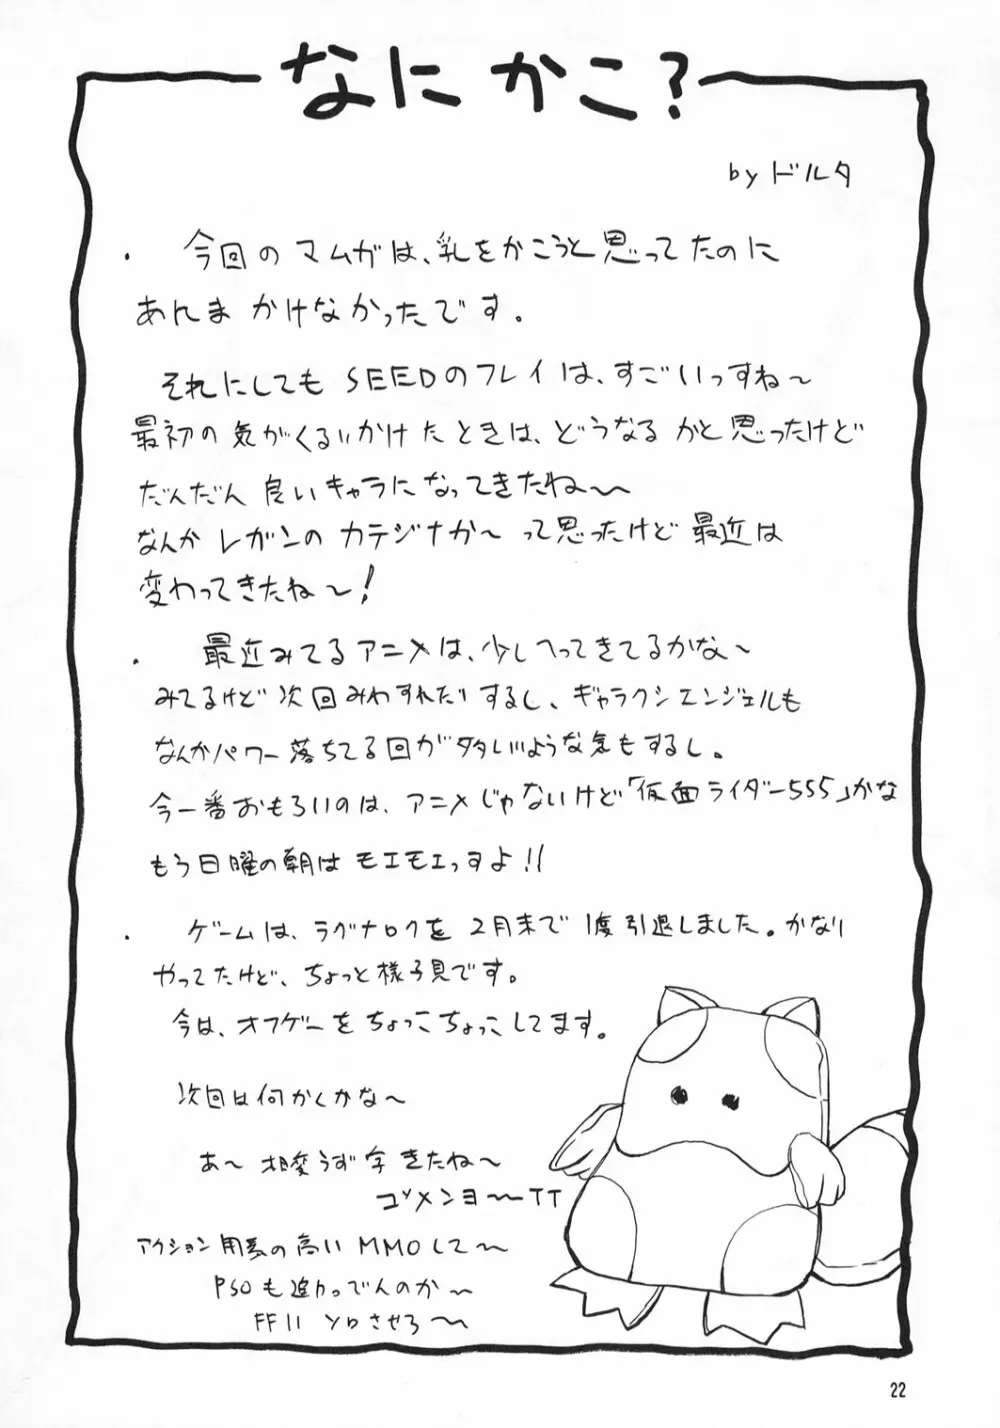 なにかこ?
by ドルタ
・ 今回のマムガは、乳をかこうと思ってたのに
あんまかけなかったです。
それにしてもSEEDのフレイは、すごいっすね〜
最初の気がくるいかけたときは、どうなるかと思ったけど
だんだん良いキャラになってきたね〜
なんかレガンのカテジナか〜って思ったけど最近は
変わってきたね〜!
・ 最近みてるアニメは、少しへってきてるかな〜
みてるけど次回みわすれたりするし、ギャラクシエンジェルも
なんかパワー落ちてる回が多いような気もするし。
今一番おもろいのは、アニメじゃないけど「仮面ライダー555」かな
もう日曜の朝はモエモエっすよ!!
・ ゲームは、ラグナロクを2月末で1度引退しました。かなり
やってたけど、ちょっと様子見です。
今は、オフゲーをちょっこちょっこしてます。
次回は何かくかな〜
あ〜相変うず字きたね〜
ゴメンヨ〜TT
アクション用素の高いMMOして〜
PSOも追かってんのか〜
FF11 ソロさせろ〜
22